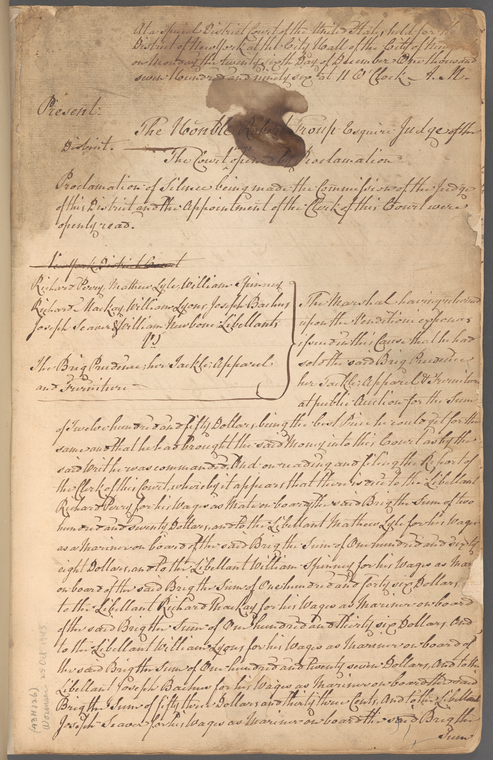 At a special District Court of the United States, held for the
District of New York at the City Hall of the City of New
on Monday the twenty sixth Day of December One thousand
seven Hundred and ninety six at 11 O'Clock A.M.
Present.
The Honble Robert Troup Esquire Judge of the
District.
The Court opened by Proclamation
Proclamation of Silence being made the Commission of the Judge
of this District and the Appointment of the Clerk of this Court were
openly read.
New York District Court
Richard Perry, Mathew Lyle, William Spinney
Richard Mackay, William Lyons, Joseph Bachus
Joseph Seaver & William Newbone Libellants
vs
The Brig Prudence her Tackle Apparel
and Furniture
The Marshal having returned
upon the Venditioni exponas
issued in this Cause that he had
sold the said Brig Prudence
her Tackle Apparel & Furniture
at public Auction for the Sum
of Twelve hundred and fifty Dollars, being the best Price he could get for the
same and that he had brought the said Money into this Court as by the
said Writ he was commanded. And on reading and filing the Report of
the Clerk of this Court, whereby it appears that there is due to the Libellant
Richard Perry for his Wages as Mate on board the said Brig the Sum of two
hundred and twenty Dollars, and to the Libellant Mathew Lyle for his Wages
as Mariner on board of the said Brig the Sum of One hundred and sixty
eight Dollars, and to the Libellant William Spinney for his Wages as Mar
on board of the said Brig the Sum of One hundred and forty six Dollars,
to the Libellant Richard Mackay for his Wages as Mariner on board
of the said Brig the Sum of One hundred and thirty six Dollars, And
to the Libellant William Lyons for his Wages as Mariner on board of
the said Brig the Sum of One hundred and twenty seven Dollars, And to the
Libellant Joseph Bachus for his Wages as Mariner on board the said
Brig the Sum of fifty three Dollars and thirty three Cents, And to the Libellant
Joseph Seaver for his Wages as Mariner on board the said Brig the
Sum